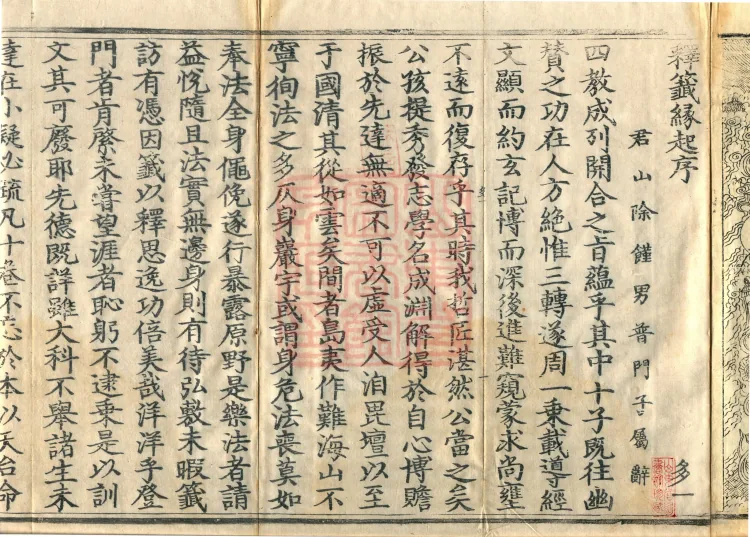 釋籤緣起序
多一
君山除饉男普門子屬辭
四教成列開合之旨蘊乎其中十子既往幽
贊之功在人方絶惟三轉遂周一乗載導經
文顯而約玄記博而深後進難窺蒙求尚壅
不遠而復存乎其時我哲匠湛然公當之矣
公孩提秀發志學名成淵解得於自心博贍
振於先達無適不可以虚受人洎毘壇以至
于國清其從如雲矣間者島夷作難海山不
寧徇法之多仄身巖宇或謂身危法喪莫如
奉法全身僶俛遂行暴露原野是樂法者請
益悅隨且法實無邊身則有待弘敷未暇籤
訪有憑因籤以釋思逸功倍美哉洋洋乎登
門者肯綮未嘗望涯者恥躬不逮秉是以訓
文其可廢耶先德既詳雖大科不舉諸生未
達在小疑必䟽凡十卷不忘於本以天台命